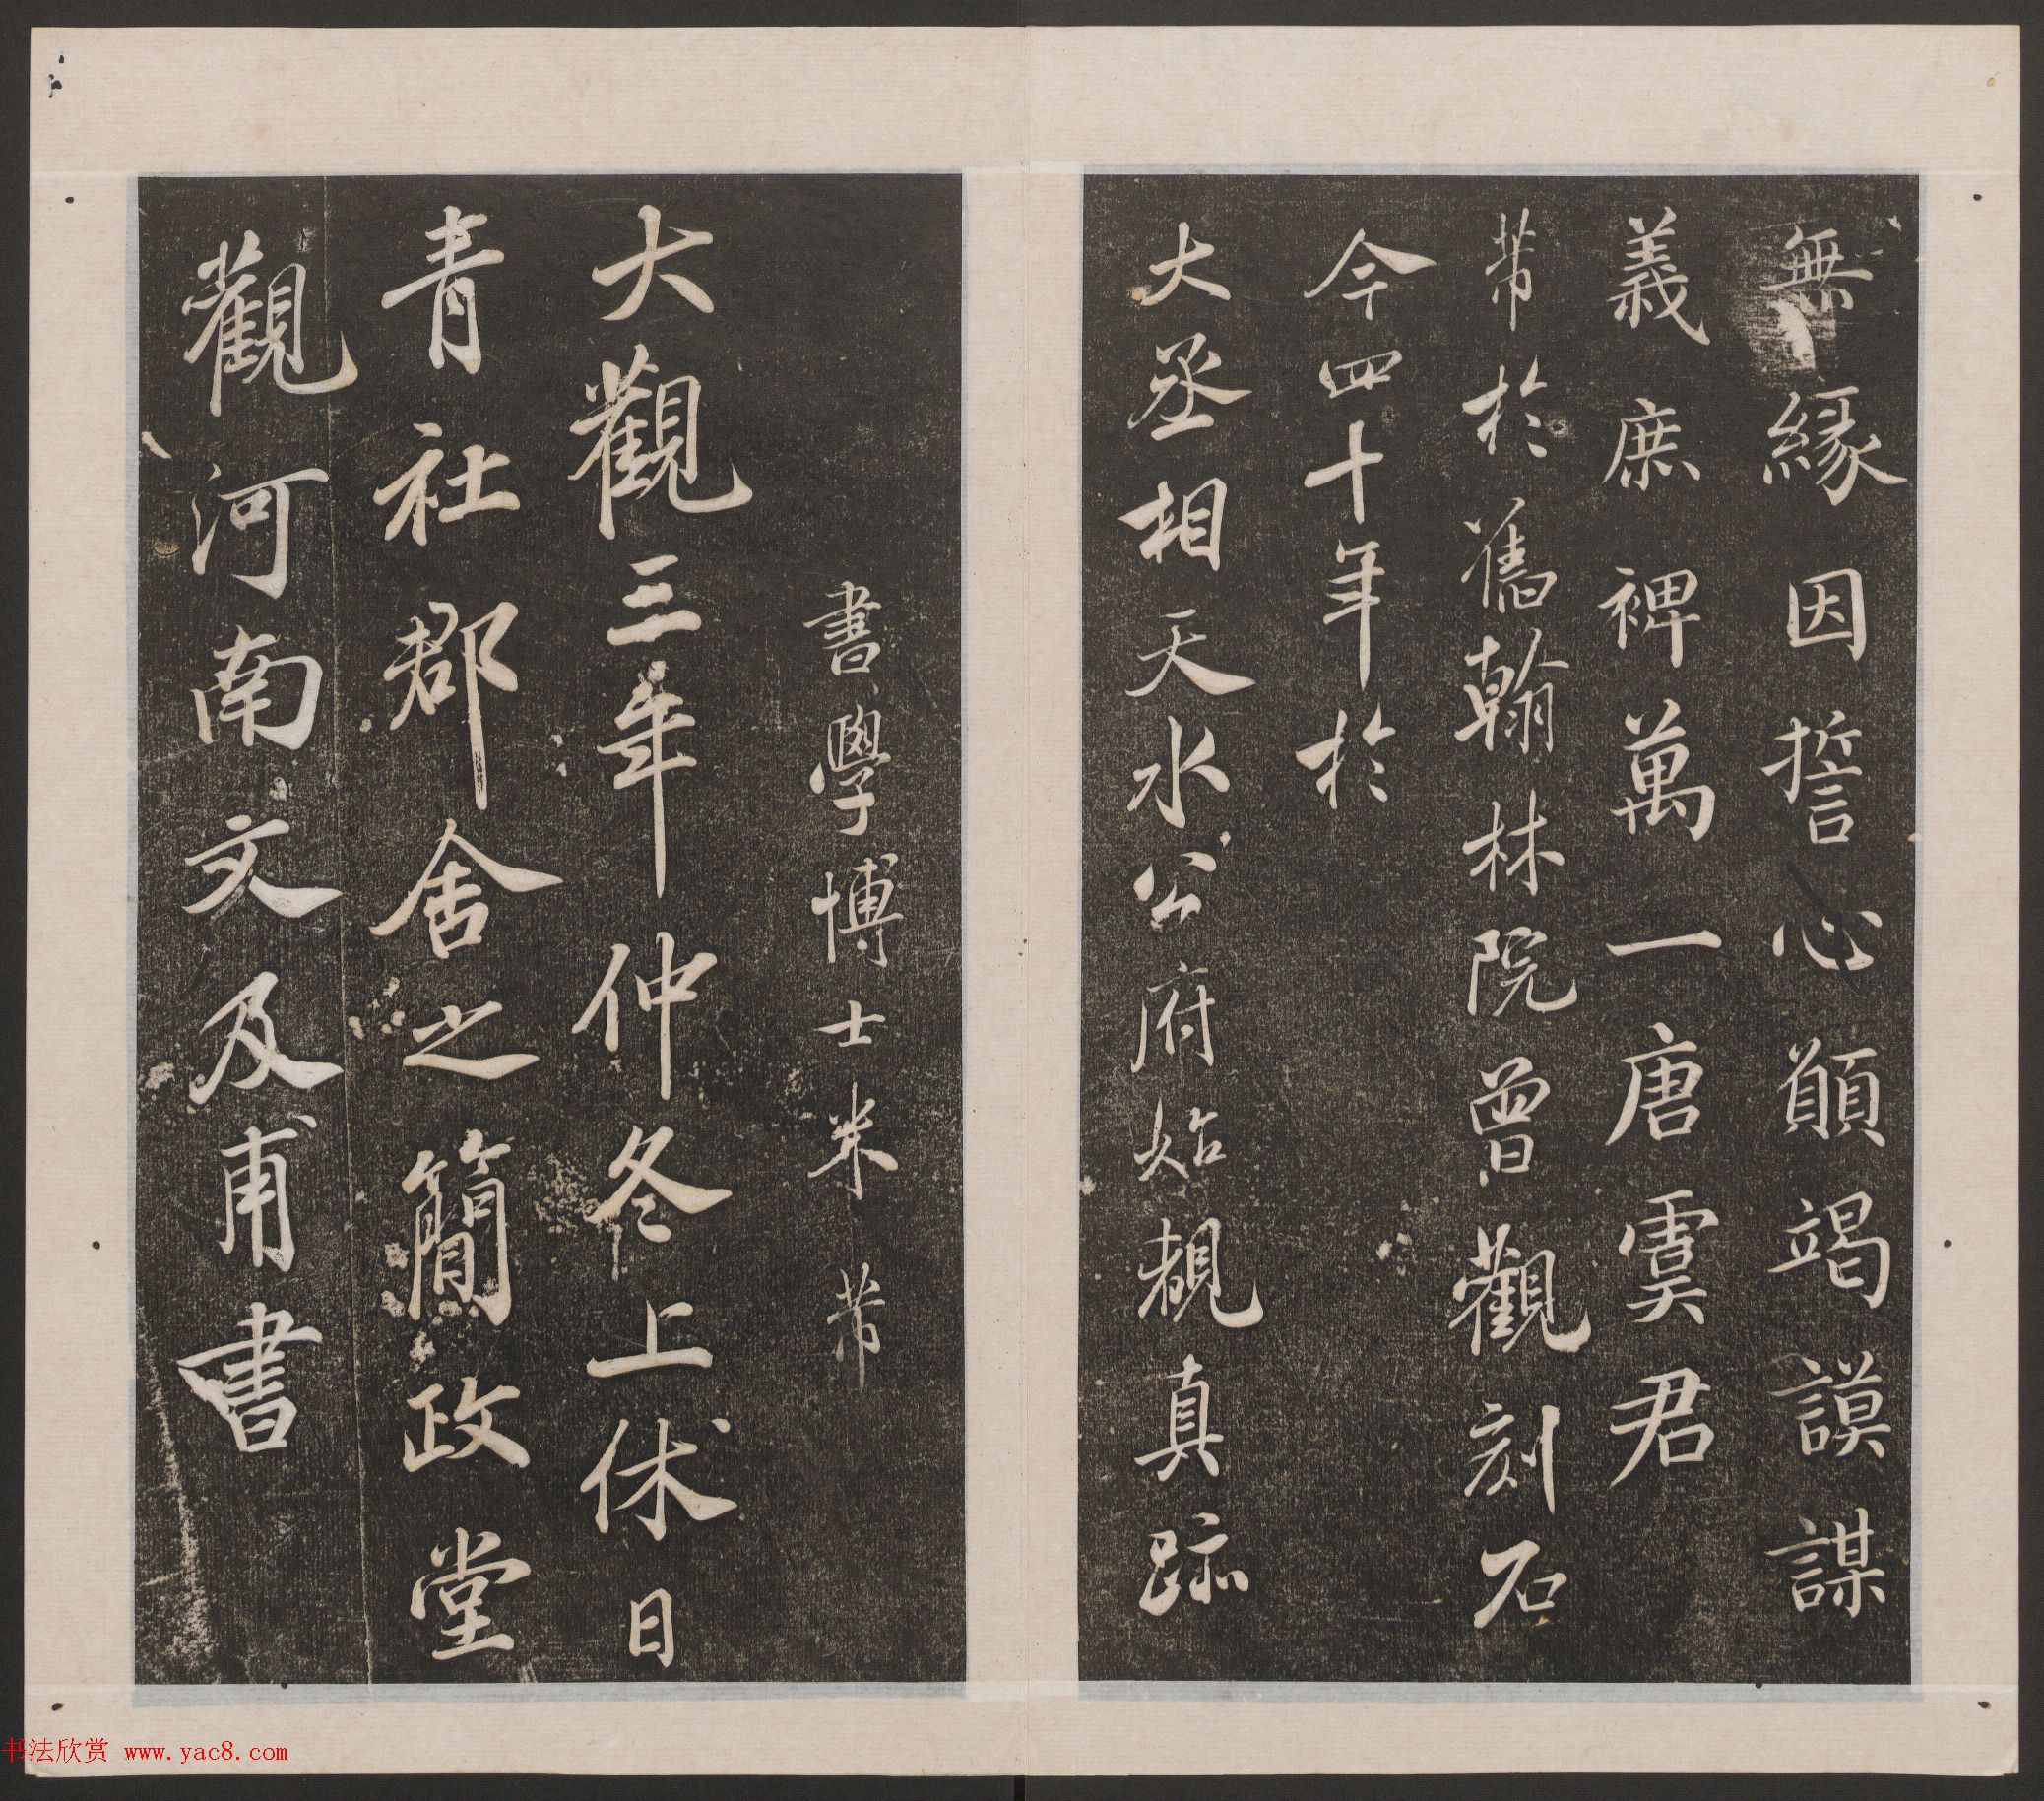 無緣因誓心願竭謨謀
義庶裨萬一唐虞君
芾於舊翰林院曾觀刻石
今四十年於
大丞相天水公府始覩真跡
書學博士米芾
大觀三年仲冬上休日
青社郡舍之簡政堂
觀河南文及甫書
书法欣赏 www.yac8.com